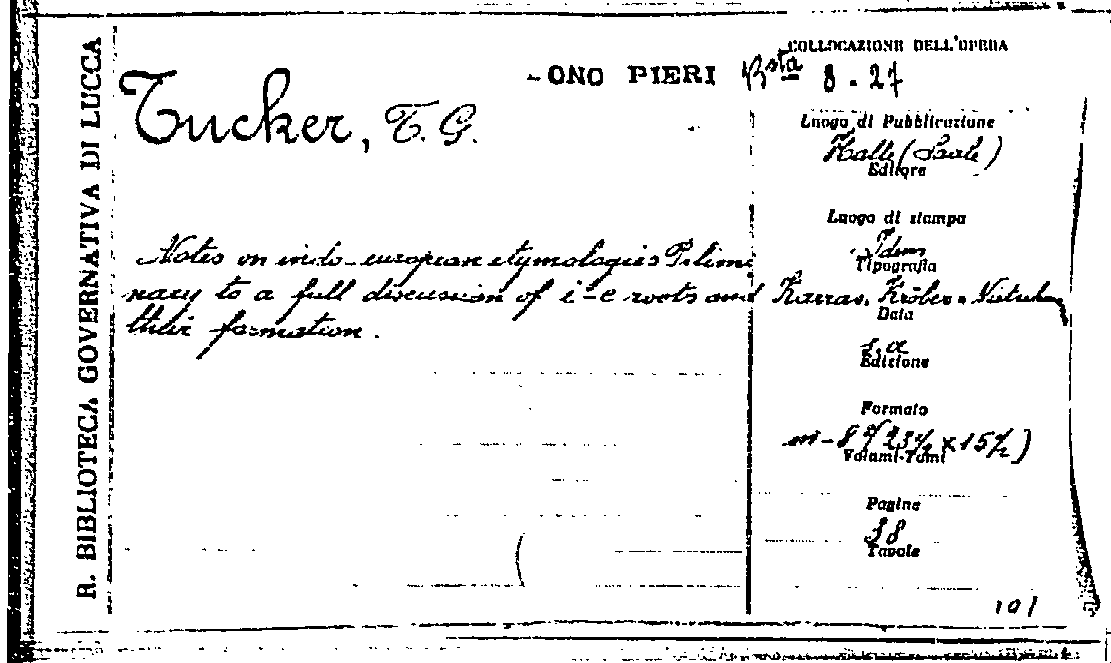 R. BIBLIOTECA GOVERNATIVA DI LUCCA
COLLOCAZIONE DELL'OPERA
-ONO PIERI Bsta 8.27
Tucker, T. G.
Luogo di Pubblicazione
Halle (Saale)
Editore
Luogo di stampa
Idem
Tipografia
Notes on indo-european etymologies Prelimi
nary to a full discussion of i-e roots and
their formation.
Karras, Kröber
Data
s.a
Edizione
Formato
in-8° (23½ x 15½)
Volumi-Tomi
Pagine
38
Tavole
101